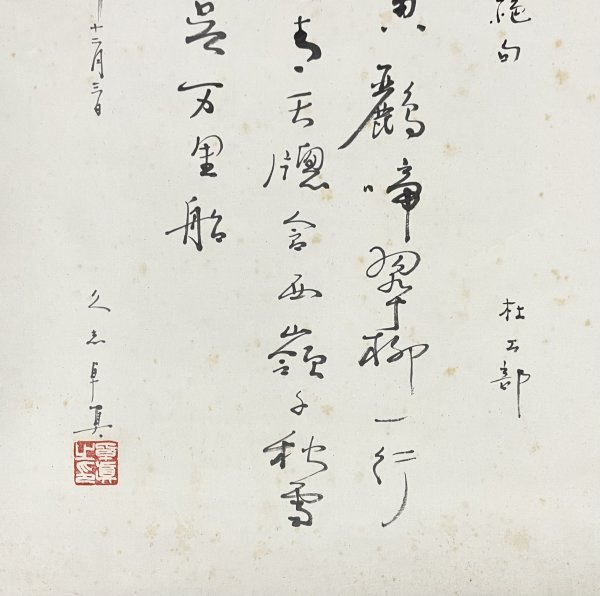 絶句
杜工部
黄鸝啼翠柳一行
青天牕含西嶺千秋雪
呉万里船
十二月三日
久志卓真
卓真之印